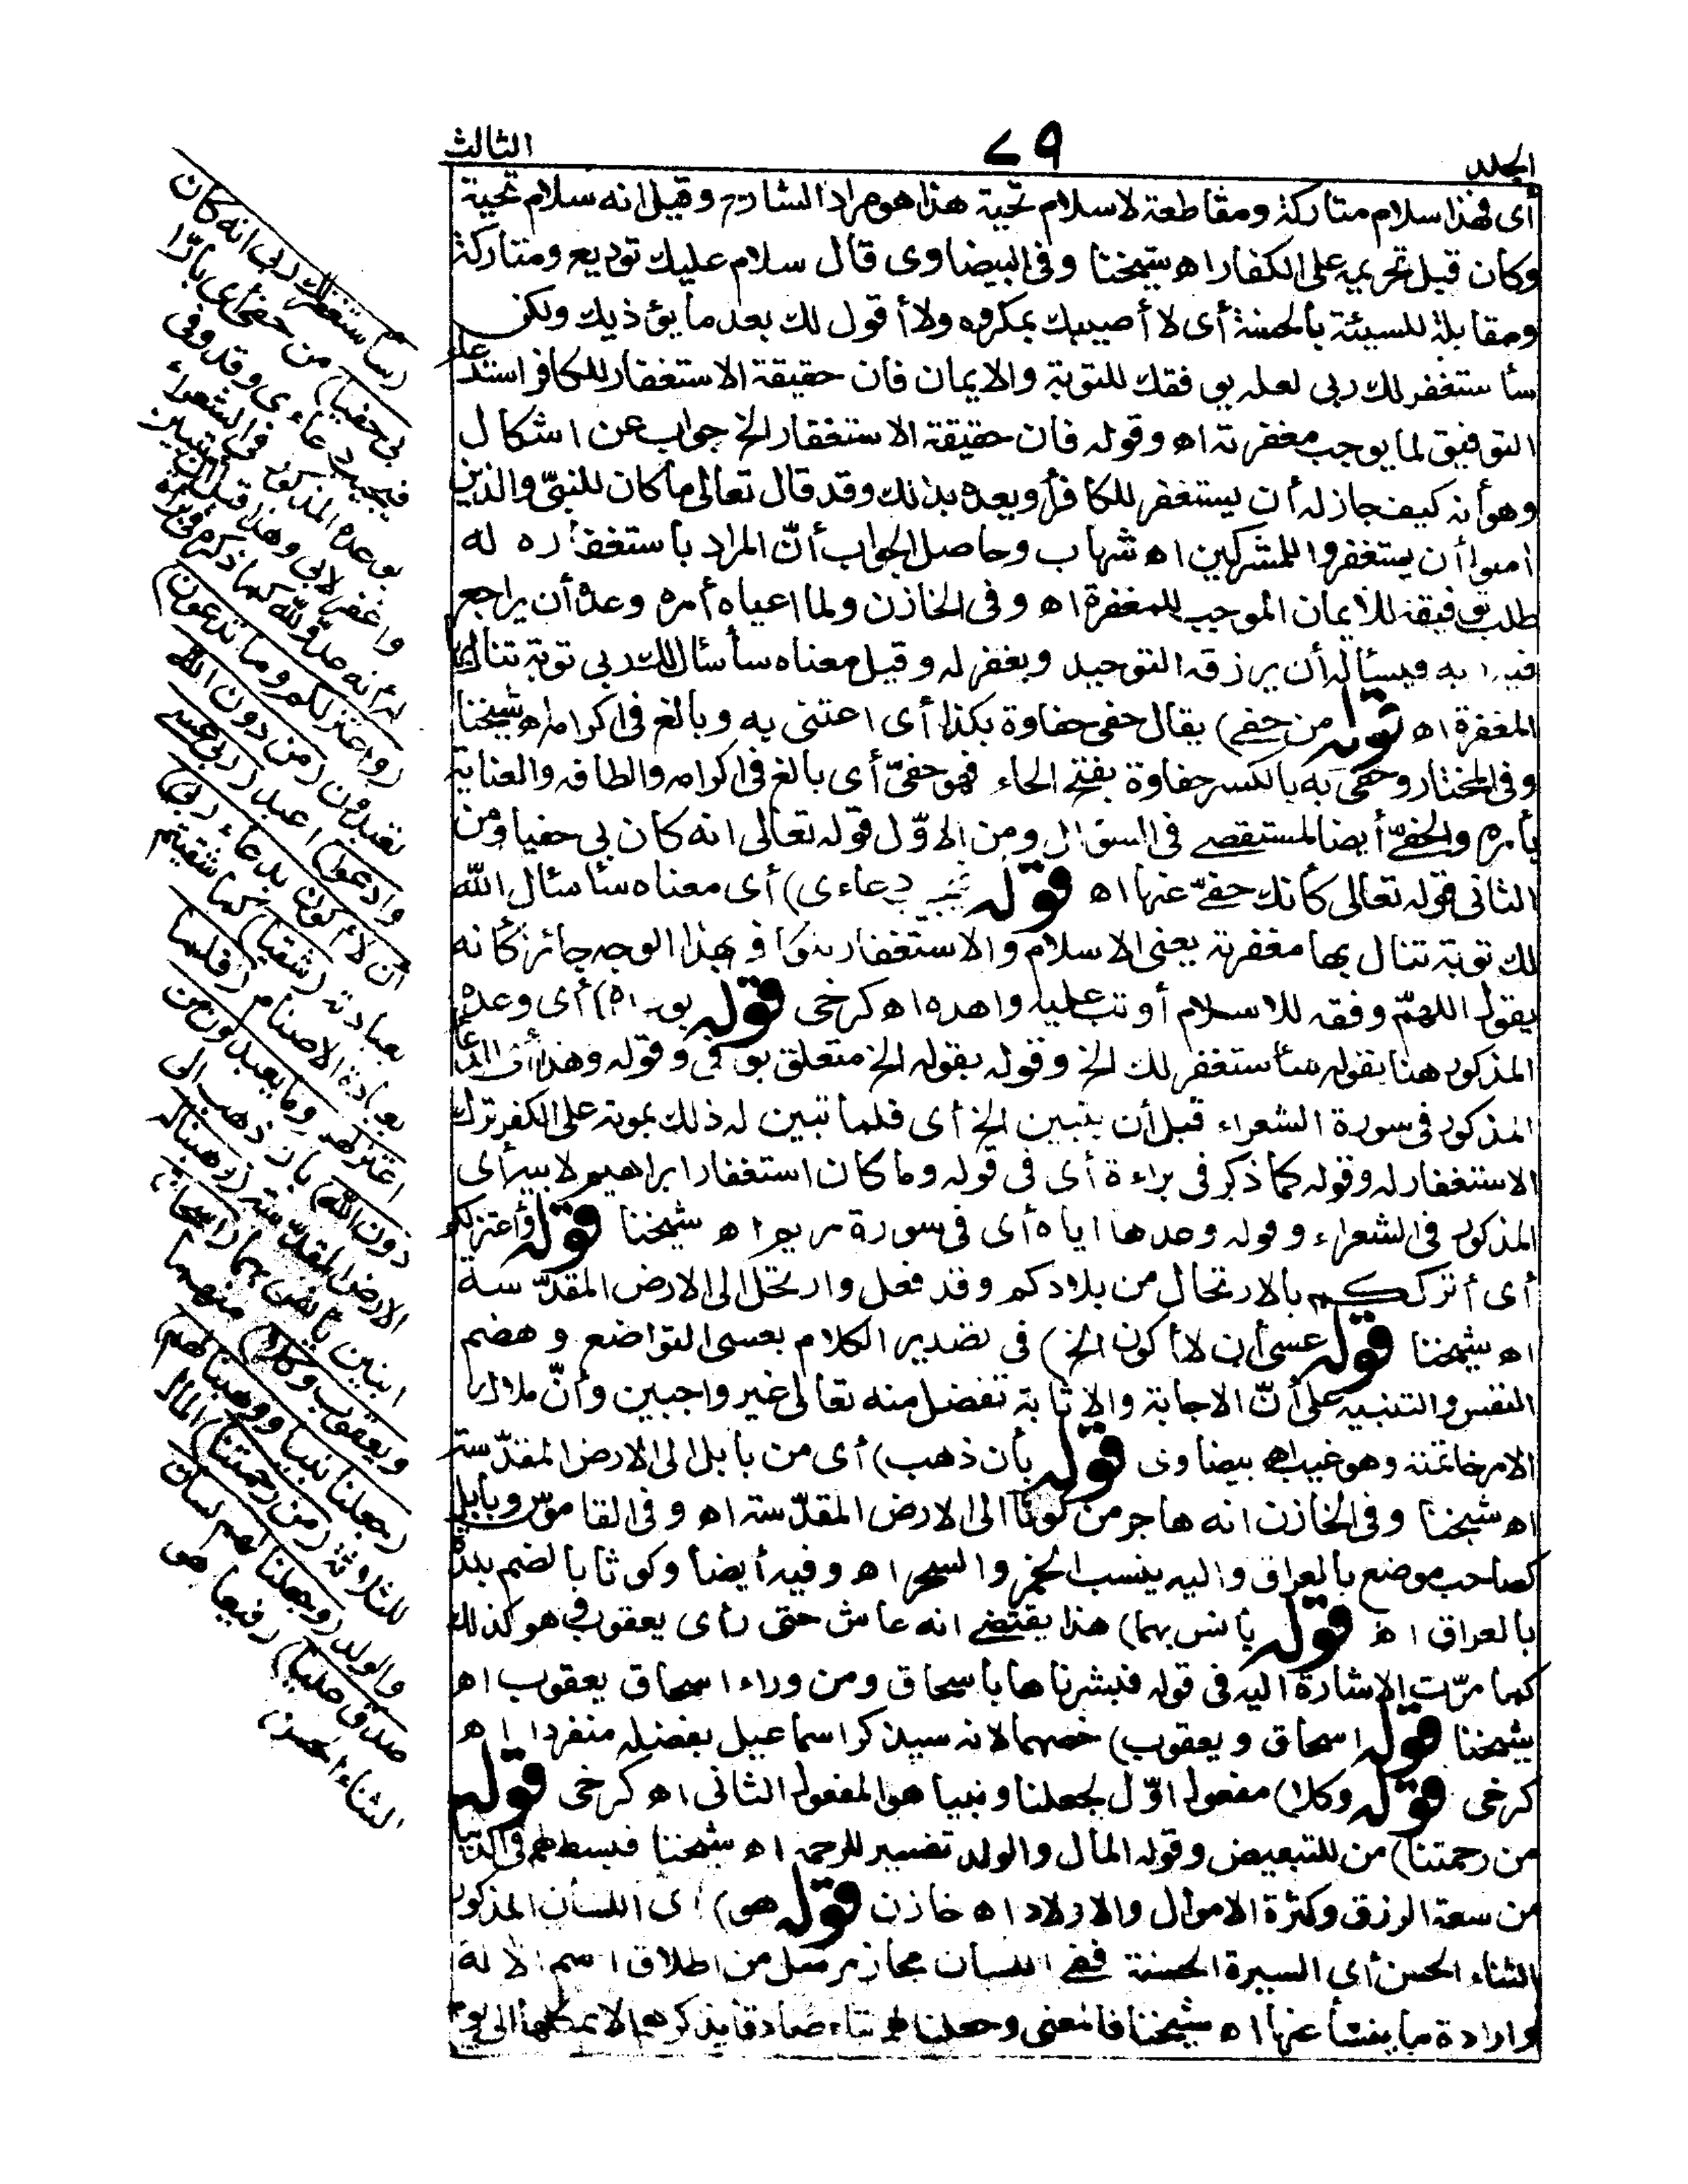 الجلد
٧٩
الثالث
أى فهذا سلام متاركة ومقاطعة لا سلام تحية هذا هو مراد الشارح وقيل انه سلام تحية
وكان قبل تحريمه على الكفار اه شيخنا وفى البيضاوى قال سلام عليك توديع ومتاركة
ومقابلة للسيئة بالحسنة أى لا أصيبك بمكروه ولا أقول لك بعد ما يؤذيك ولكن
سأستغفر لك ربى لعله يوفقك للتوبة والايمان فان حقيقة الاستغفار للكافر استدعاء
التوفيق لما يوجب مغفرته اه وقوله فان حقيقة الاستغفار الخ جواب عن اشكال
وهو أنه كيف جاز له أن يستغفر للكافر أو يعده بذلك وقد قال تعالى ما كان للنبىّ والذين
امنوا أن يستغفروا للمشركين اه شهاب وحاصل الجواب أنّ المراد باستغفاره له
طلب توفيقه للايمان الموجب للمغفرة اه وفى الخازن ولما اعياه أمره وعده أن يراجع
فيه ربه فيسأله أن يرزقه التوحيد ويغفر له وقيل معناه سأسأل لك ربى توبة تنال بها
المغفرة اه قوله من حفى) يقال حفى حفاوة بكذا أى اعتنى به وبالغ فى اكرامه اه شيخنا
وفى المختار وحفى به بالكسر حفاوة بفتح الحاء فهو حفىّ أى بالغ فى اكرامه والطافه والعناية
بأمره والحفىّ أيضا المستقصى فى السؤال ومن الاوّل قوله تعالى انه كان بى حفيا ومن
الثانى قوله تعالى كأنك حفىّ عنها اه قوله فيجيب دعاءى) أى معناه سأسأل الله
لك توبة تنال بها مغفرته يعنى الاسلام والاستغفار للكافر بهذا الوجه جائز كأنه
يقول اللهمّ وفقه للاسلام أو تب عليه واهده اه كرخى قوله بوعده) أى وعده
المذكور هنا بقوله سأستغفر لك الخ وقوله بقوله الخ متعلق بوفى وقوله وهذا أى الدعاء
المذكور فى سورة الشعراء قبل أن يتبين الخ أى فلما تبين له ذلك بموته على الكفر ترك
الاستغفار له وقوله كما ذكر فى براءة أى فى قوله وما كان استغفار ابراهيم لابيه أى
المذكور فى الشعراء وقوله وعدها اياه أى فى سورة مريم اه شيخنا قوله وأعتزلكم
أى أترككم بالارتحال من بلادكم وقد فعل وارتحل الى الارض المقدّسة
اه شيخنا قوله عسى أن لا أكون الخ) فى تصدير الكلام بعسى التواضع وهضم
النفس والتنبيه على أنّ الاجابة والاثابة تفضل منه تعالى غير واجبين وأنّ ملاك
الامر خاتمته وهو غيب اه بيضاوى قوله بأن ذهب) أى من بابل الى الارض المقدّسة
اه شيخنا وفى الخازن انه هاجر من كوثا الى الارض المقدّسة اه وفى القاموس وبابل
كصاحب موضع بالعراق واليه ينسب الخمر والسحر اه وفيه أيضا وكوثا بالضم بلدة
بالعراق اه قوله يأنس بهما) هذا يقتضى انه عاش حتى رأى يعقوب وهو كذلك
كما مرّت الاشارة اليه فى قوله فبشرناها باسحاق ومن وراء اسحاق يعقوب اه
شيخنا قوله اسحاق ويعقوب) خصهما لانه سيذكر اسماعيل بفضله منفردا اه
كرخى قوله وكلا) مفعول اوّل لجعلنا ونبيا هو المفعول الثانى اه كرخى قوله
من رحمتنا) من للتبعيض وقوله المال والولد تفسير للرحمة اه شيخنا فبسط لهم فى الدنيا
من سعة الرزق وكثرة الاموال والاولاد اه خازن قوله هو) أى اللسان المذكور
الثناء الحسن أى السيرة الحسنة ففى اللسان مجاز مرسل من اطلاق اسم الآلة
وارادة ما ينشأ عنها اه شيخنا فالمعنى وجعلنا لهم ثناء صادقا يذكرهم الامم كلها الى يوم
(سأستغفر لك ربى انه كان
بى حفيا) من حفى أى بارّا
فيجيب دعاءى وقد وفى
بوعده المذكور فى الشعراء
واغفر لابى وهذا قبل أن يتبين
له أنه عدوّ لله كما ذكره فى براءة
(واعتزلكم وما تدعون)
تعبدون (من دون الله
وادعوا) اعبد (ربى عسى
أن لا أكون بدعاء ربى)
بعبادته (شقيا) كما شقيتم
بعبادة الاصنام (فلما
اعتزلهم وما يعبدون من
دون الله) بأن ذهب الى
الارض المقدّسة (وهبنا له)
ابنين يأنس بهما (اسحاق
ويعقوب وكلا) منهما
(جعلنا نبيا ووهبنا لهم)
للثلاثة (من رحمتنا) المال
والولد (وجعلنا لهم لسان
صدق عليا) رفيعا هو
الثناء الحسن